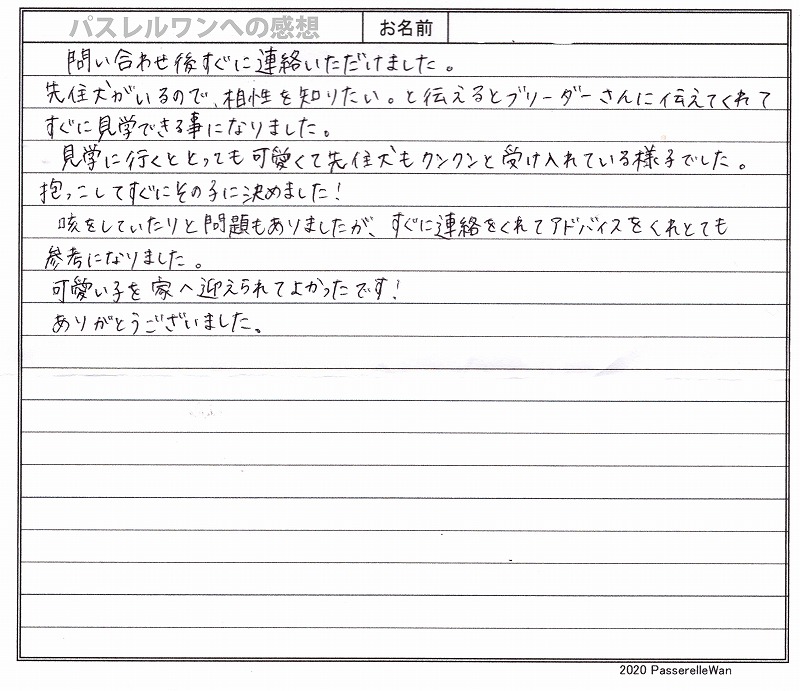 パスレルワンへの感想 お名前
問い合わせ後すぐに連絡いただけました。
先住犬がいるので、相性を知りたい。と伝えるとブリーダーさんに伝えてくれて
すぐに見学できる事になりました。
見学に行くととっても可愛くて先住犬もクンクンと受け入れている様子でした。
抱っこしてすぐにその子に決めました！
咳をしていたりと問題もありましたが、すぐに連絡をくれてアドバイスをくれとても
参考になりました。
可愛い子を家へ迎えられてよかったです！
ありがとうございました。
2020 PasserelleWan